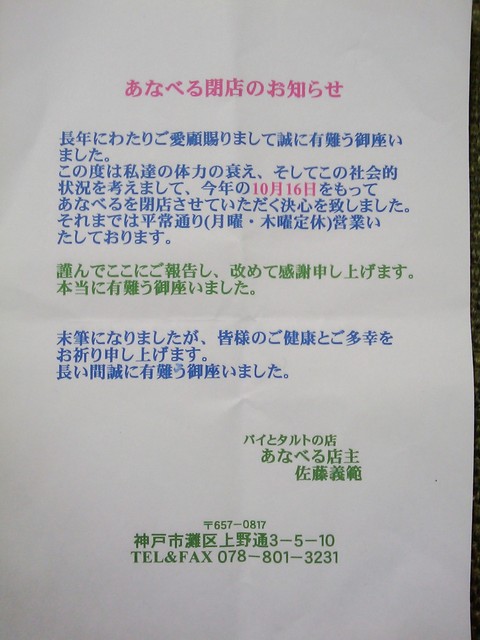 あなべる閉店のお知らせ
長年にわたりご愛顧賜りまして誠に有難う御座い
ました。
この度は私達の体力の衰え、そしてこの社会的
状況を考えまして、今年の10月16日をもって
あなべるを閉店させていただく決心を致しました。
それまでは平常通り(月曜・木曜定休)営業い
たしております。
謹んでここにご報告し、改めて感謝申し上げます。
本当に有難う御座いました。
末筆になりましたが、皆様のご健康とご多幸を
お祈り申し上げます。
長い間誠に有難う御座いました。
パイとタルトの店
あなべる店主
佐藤義範
〒657−0817
神戸市灘区上野通3−5−10
TEL&FAX 078−801−3231